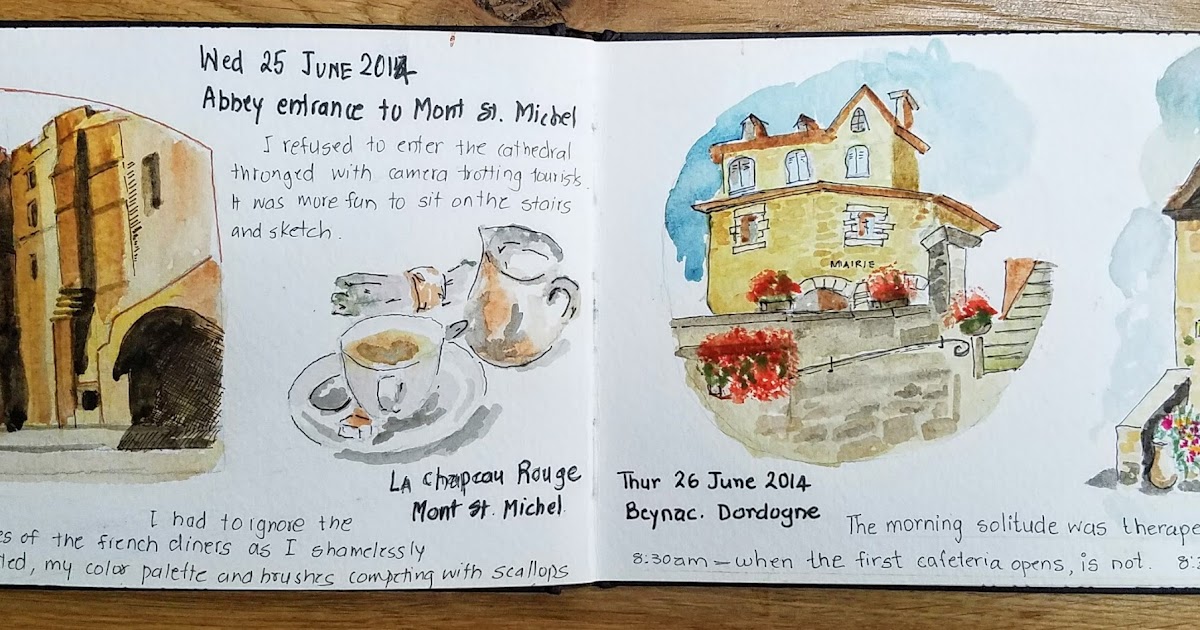 Wed 25 June 2014
Abbey entrance to Mont St. Michel
I refused to enter the cathedral
thronged with camera trotting tourists.
It was more fun to sit on the stairs
and sketch.
La chapeau Rouge
Mont St. Michel
I had to ignore the
es of the french diners as I shamelessly
ted, my color palette and brushes competing with scallops
MAIRIE
Thur 26 June 2014
Beynac. Dordogne
The morning solitude was therape
8:30am – when the first cafeteria opens, is not.